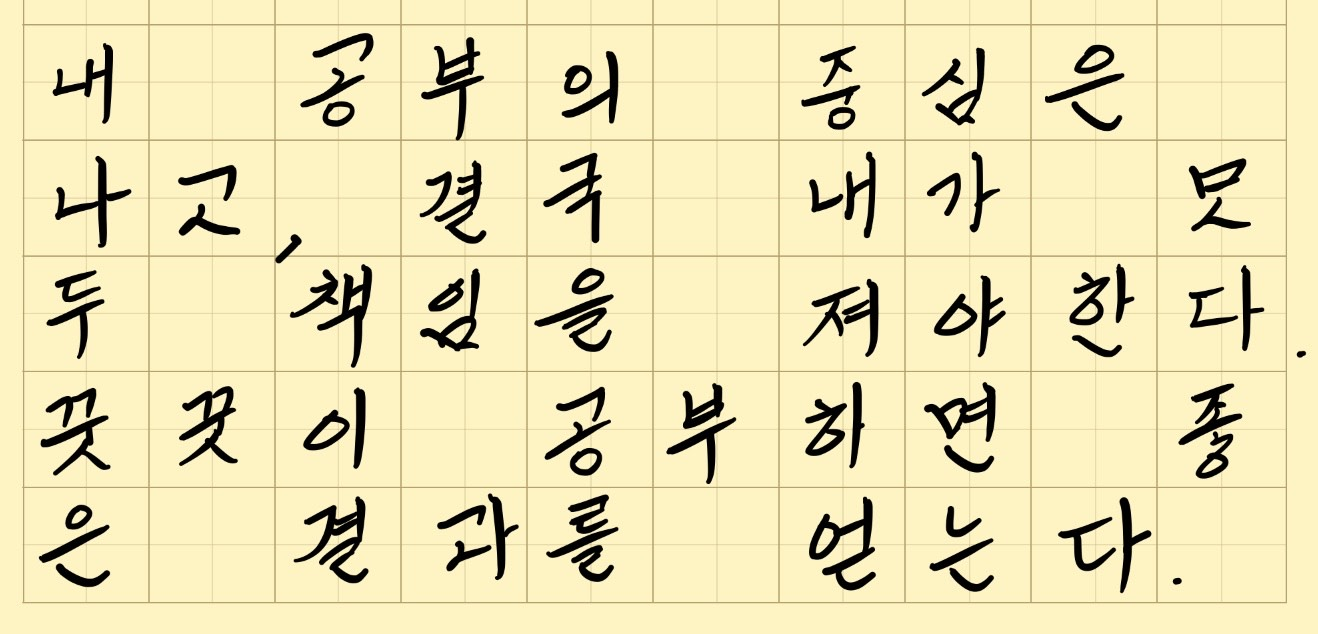 내 공부의 중심은
나고, 결국 내가 못
두 책임을 져야한다.
끗꿋이 공부하면 좋
은 결과를 얻는다.